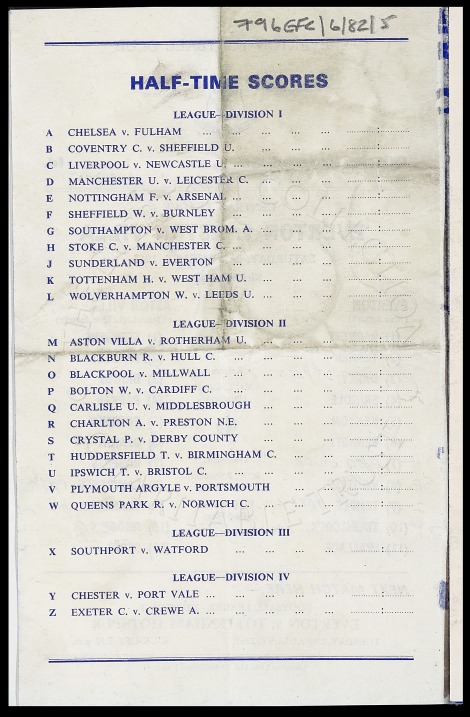 796EFC/6/82/5
HALF-TIME SCORES
LEAGUE—DIVISION I
A CHELSEA v. FULHAM ... ... ... ... ...
B COVENTRY C. v. SHEFFIELD U. ... ... ...
C LIVERPOOL v. NEWCASTLE U. ... ... ...
D MANCHESTER U. v. LEICESTER C. ... ... ...
E NOTTINGHAM F. v. ARSENAL ... ... ...
F SHEFFIELD W. v. BURNLEY ... ... ... ...
G SOUTHAMPTON v. WEST BROM. A. ... ... ...
H STOKE C. v. MANCHESTER C. ... ... ... ...
J SUNDERLAND v. EVERTON ... ... ... ...
K TOTTENHAM H. v. WEST HAM U. ... ... ...
L WOLVERHAMPTON W. v. LEEDS U. ... ... ...
LEAGUE—DIVISION II
M ASTON VILLA v. ROTHERHAM U. ... ... ...
N BLACKBURN R. v. HULL C. ... ... ... ...
O BLACKPOOL v. MILLWALL ... ... ... ...
P BOLTON W. v. CARDIFF C. ... ... ... ...
Q CARLISLE U. v. MIDDLESBROUGH ... ... ...
R CHARLTON A. v. PRESTON N.E. ... ... ...
S CRYSTAL P. v. DERBY COUNTY ... ... ...
T HUDDERSFIELD T. v. BIRMINGHAM C. ... ...
U IPSWICH T. v. BRISTOL C. ... ... ... ...
V PLYMOUTH ARGYLE v. PORTSMOUTH ... ...
W QUEENS PARK R. v. NORWICH C. ... ... ...
LEAGUE—DIVISION III
X SOUTHPORT v. WATFORD ... ... ... ...
LEAGUE—DIVISION IV
Y CHESTER v. PORT VALE ... ... ... ... ...
Z EXETER C. v. CREWE A. ... ... ... ... ...